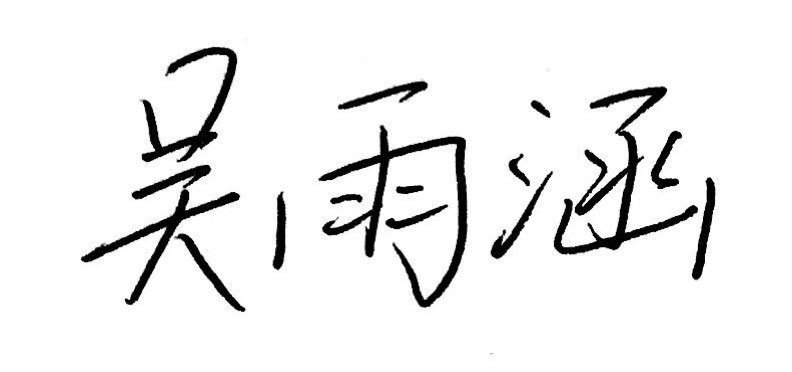 吴雨涵